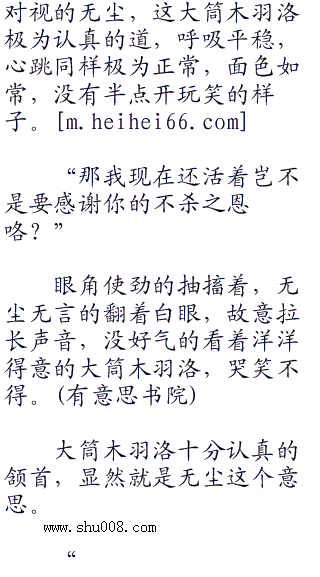 对视的无尘，这大筒木羽洛
极为认真的道，呼吸平稳，
心跳同样极为正常，面色如
常，没有半点开玩笑的样
子。[m.heihei66.com]
“那我现在还活着岂不
是要感谢你的不杀之恩
咯？”
眼角使劲的抽搐着，无
尘无言的翻着白眼，故意拉
长声音，没好气的看着洋洋
得意的大筒木羽洛，哭笑不
得。(有意思书院)
大筒木羽洛十分认真的
颔首，显然就是无尘这个意
思。
www.shu008.com
“